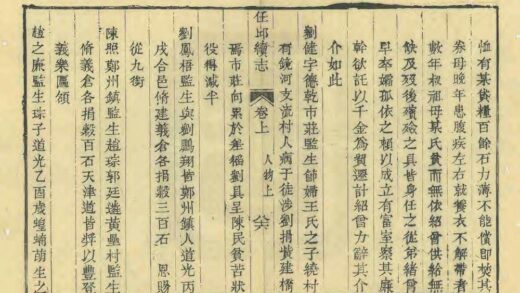 恤有某貸糧百餘石力薄不能償即焚其
券母晚年患腹疾左右就養衣不解帶者
數年叔祖母某氏貧而無依紹曾供給無
缺及歿後殯殮之具皆身任之從弟緒曾
早卒孀孤依之賴以成立有富室察其廉
幹欲託以千金為貿遷計紹曾力辭其介
介如此
劉健字德乾市莊監生節婦王氏之子繞村
有鏡河支流村人病于徒涉劉捐貲建橋
任邱續志 卷上 人物上
焉市莊向累於差徭劉具呈陳民貧苦狀
役得減半
劉鳳梧監生與劉鵬翔皆鄚州鎮人道光丙
戌合邑脩建義倉各捐穀三百石 恩賜
從九銜
陳照鄚州鎮監生趙琮郭廷選黃壘村監生
脩義倉各捐穀百石天津道皆獎以豐登
義樂匾額
趙之廉監生琮子道光乙酉歲蝗蝻萌生之